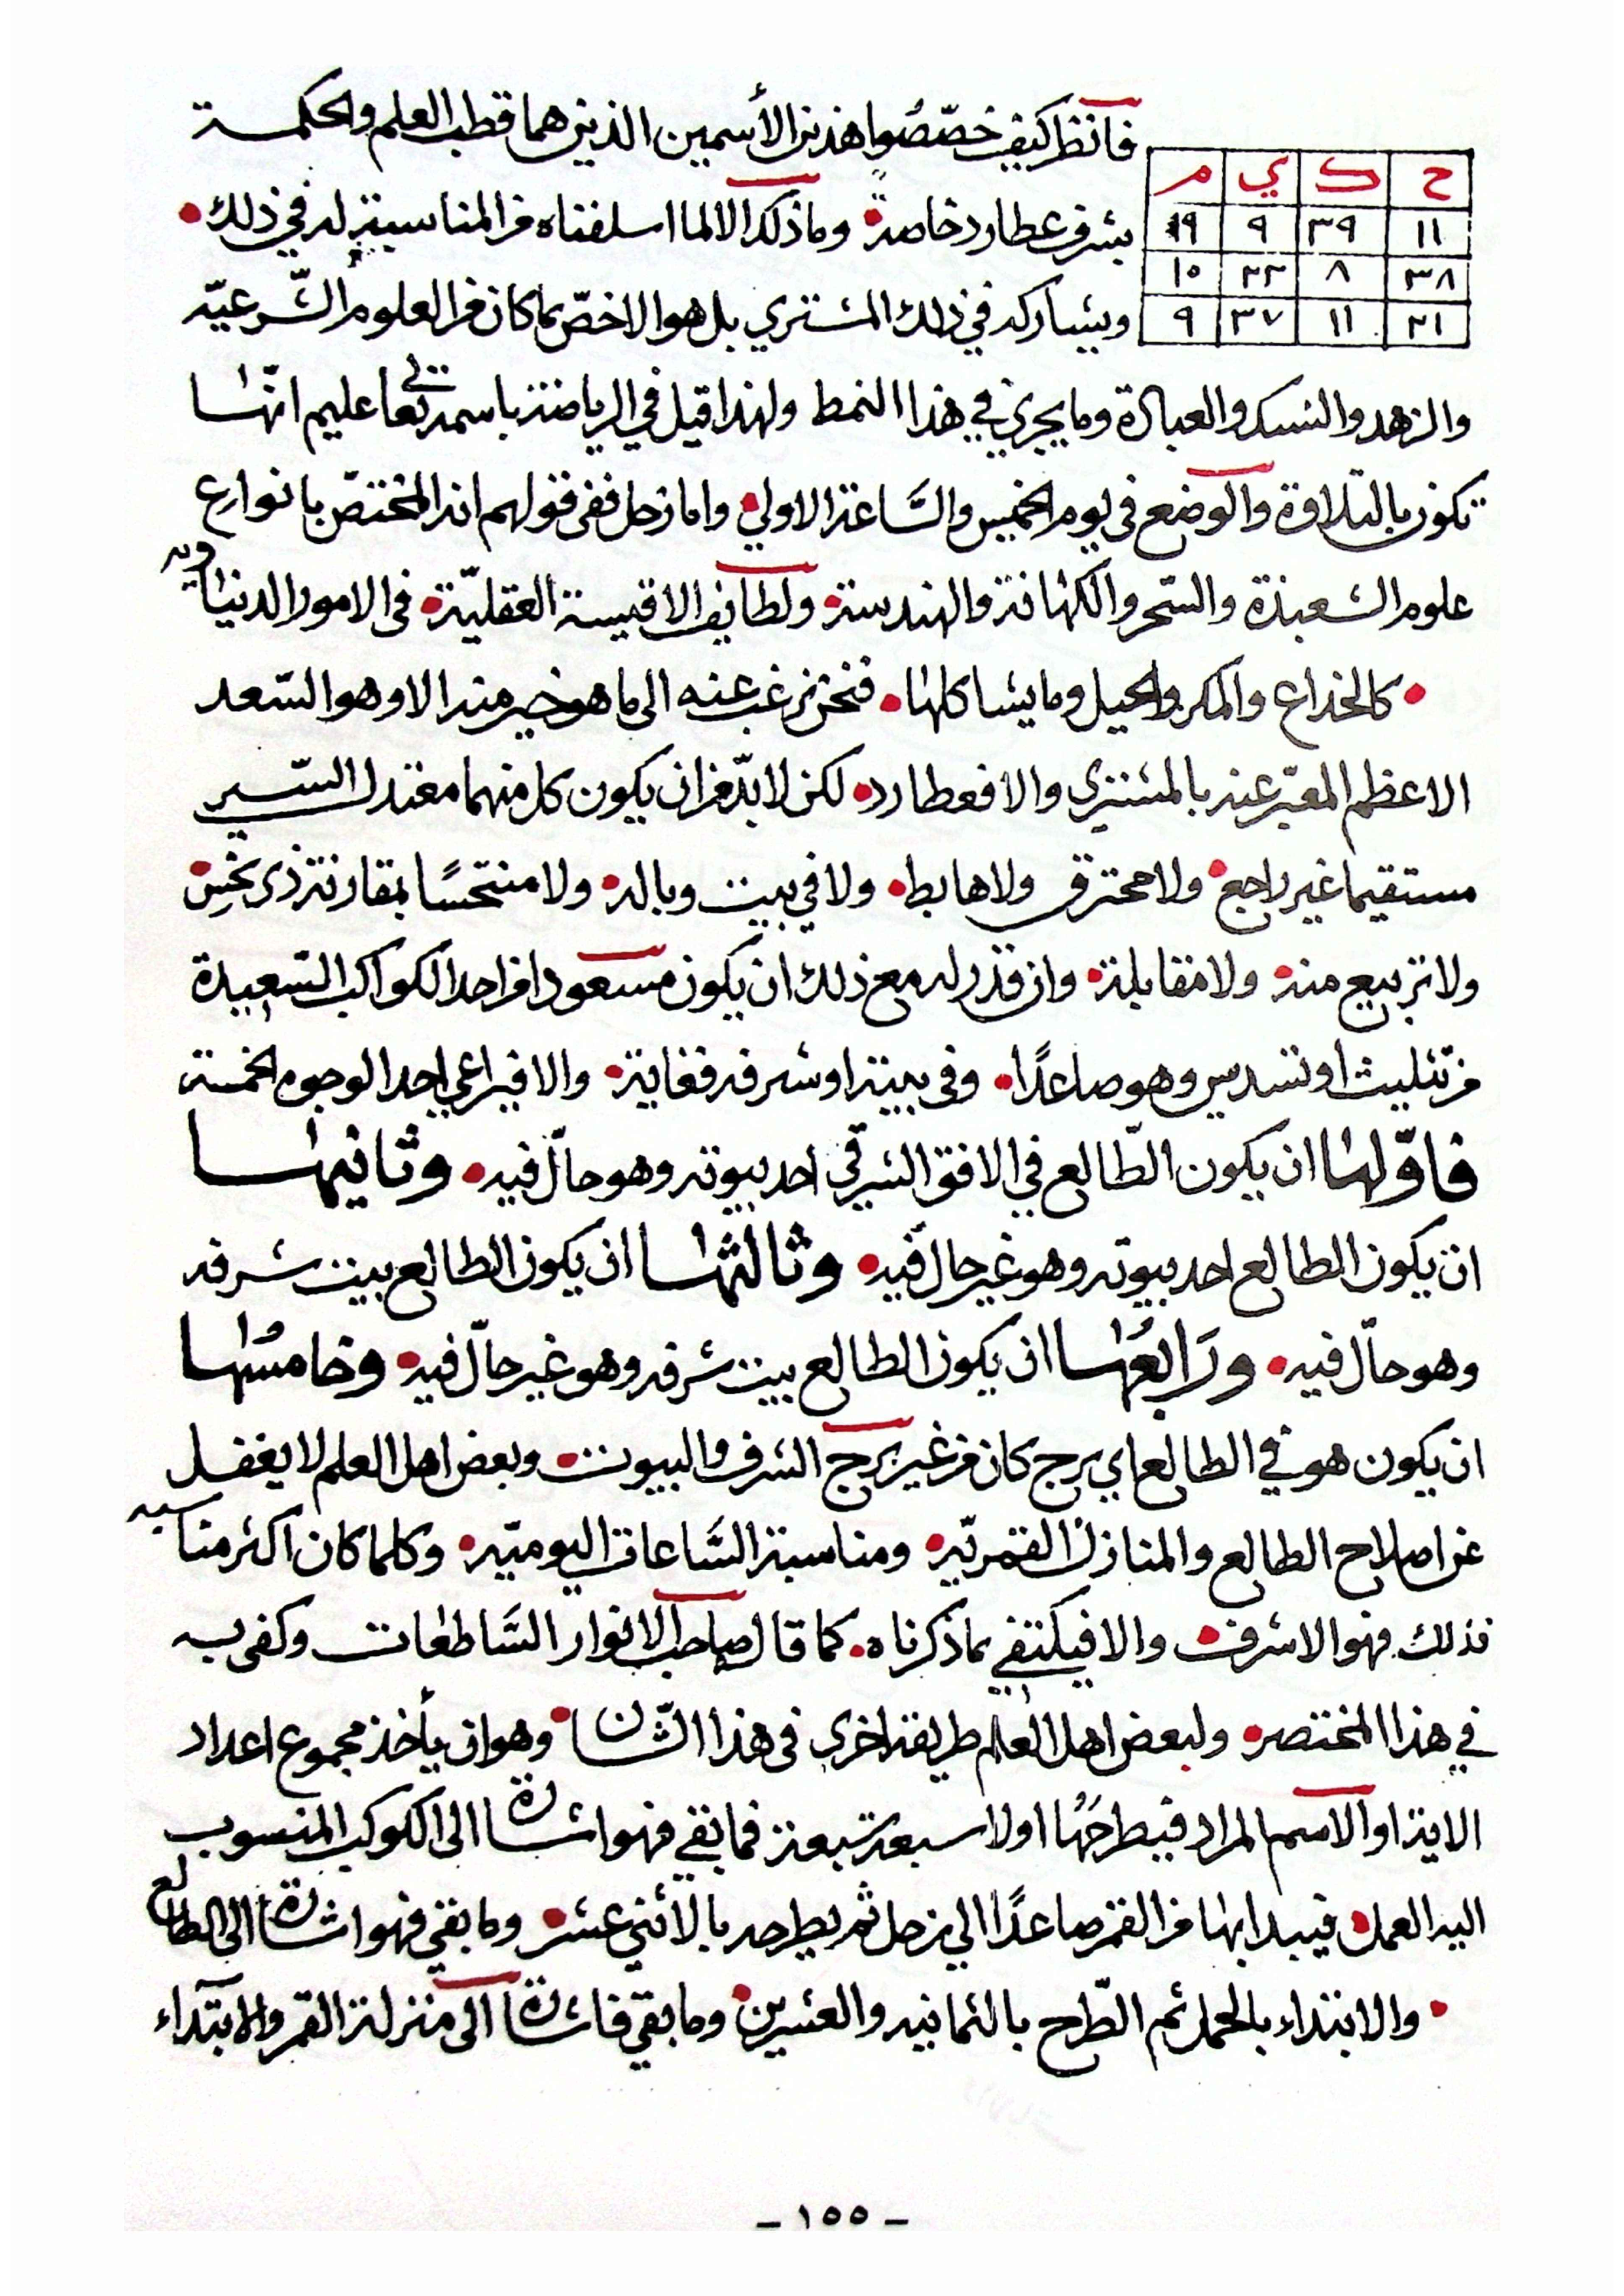 فانظر كيف خصّصُوا هذين الأسمين الذين هما قطب العلم والحكمـة
ح ك ي م
١١ ٣٩ ٩ ١٩
٣٨ ٨ ٢٢ ١٠
٢١ ١١ ٣٧ ٩
بشرف عطارد خاصةً وما ذلك الا لما اسلفناه من المناسبة له في ذلك
ويشاركه في ذلك المشتري بل هو الاخصّ بما كان من العلوم الشّرعيّه
والزهد والنسك والعبادة وما يجري في هذا النمط ولهذا قيل في الرياضة باسمه تعالى عليم انّها
تكون بالتلاوة والوضع في يوم الخميس والسَّاعة الاولي واما زحل ففي قولهم انه المختصّ بانواع
علوم الشعبذة والسّحر والكهانة والهندسة ولطايف الاقيسة العقليّة في الامور الدنياويه
كالخداع والمكر والحيل وما يشاكلها فنحن نرغب عنه الى ما هو خير منه الا وهو السّعد
الاعظم المعبّر عنه بالمشتري والا فعطارد لكن لا بدّ من ان يكون كل منهما معتدل السّير
مستقيما غير راجع ولا محترق ولا هابط ولا في بيت وباله ولا منتحسًا بمقارنة ذي نحس
ولا تربيع منه ولا مقابلة وان قدر له مع ذلك ان يكون مسعودا من احد الكواكب السّعيدة
من تثليث او تسديس وهو صاعدًا وفي بيته او شرفه فغاية والا فيراعي احد الوجوه الخمسة
فاوّلها ان يكون الطّالع في الافق الشرقي احد بيوته وهو حالّ فيه وثانيها
ان يكون الطالع احد بيوته وهو غير حالّ فيه وثالثها ان يكون الطالع بيت شرفه
وهو حالّ فيه ورَابعُها ان يكون الطالع بيت شرفه وهو غير حالّ فيه وخامسُها
ان يكون هو في الطالع اي برج كان من غير برج الشرف والبيوت وبعض اهل العلم لا يغفل
عن اصلاح الطالع والمنازل القمريّه ومناسبة السَّاعات اليوميّه وكلما كان اكثر مناسبه
فذلك فهو الاشرف والا فيكتفي بما ذكرناه كما قال صاحب الانوار السَّاطعات وكفى به
في هذا المختصر ولبعض اهل العلم طريقة اخرى في هذا الشّان وهو ان يأخذ مجموع اعداد
الاية او الاسم المراد فيطرحَهُا اولا سبعة سبعة فما بقي فهو اشارة الى الكوكب المنسوب
اليه العمل فيبدا بها من القمر صاعدًا الي زحل ثم يطرحه بالاثني عشر وما بقي فهو اشارة الى الطالع
والابتداء بالحمل ثم الطّرح بالثمانيه والعشرين وما بقي فاشارة الى منزلة القمر والابتداء
- ١٥٥ -